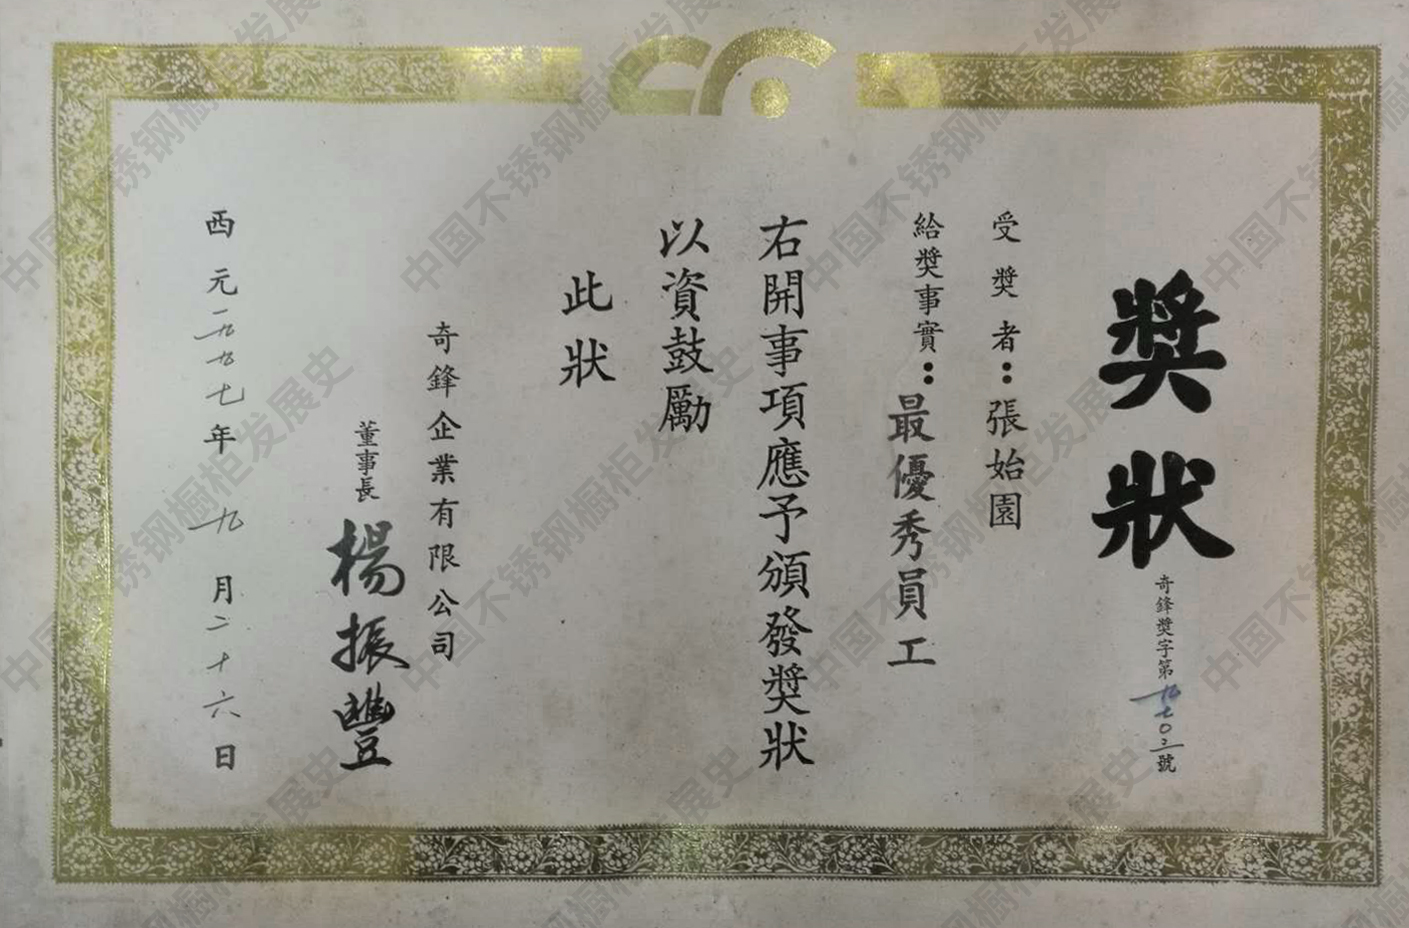 獎狀
奇鋒獎字第九七〇三號
受獎者：張始園
給獎事實：最優秀員工
右開事項應予頒發獎狀
以資鼓勵
此狀
奇鋒企業有限公司
董事長 楊振豐
西元一九九七年九月二十六日
中国不锈钢橱柜发展史